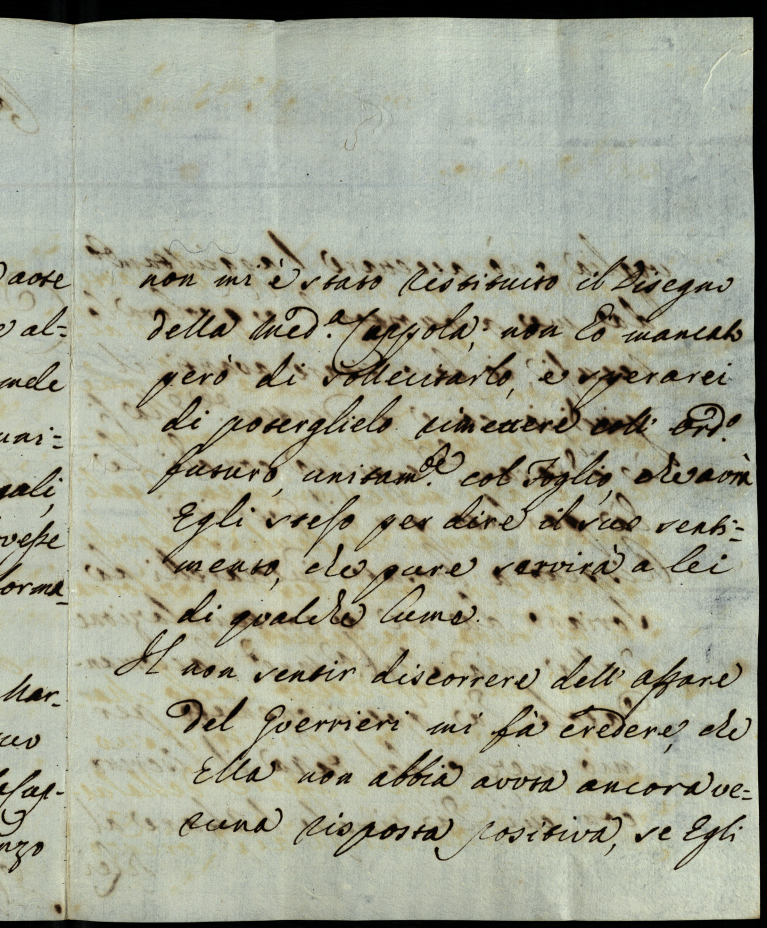 non mi è stato restituito il Disegno
della Med.ª Cappola, non hò mancato
però di sollecitarlo, e sperarei
di poterglielo rimettere coll' ord.º
futuro, unitam.te col Foglio, che avrà
Egli stesso per dire il suo senti=
mento, che pure servirà a lei
di qualche lume.
Il non sentir discorrere dell' affare
del Guerrieri mi fà credere, che
Ella non abbia avuta ancora ve=
runa risposta positiva, se Egli
al=
gali,
vesse
forma_
Mar_
nzo